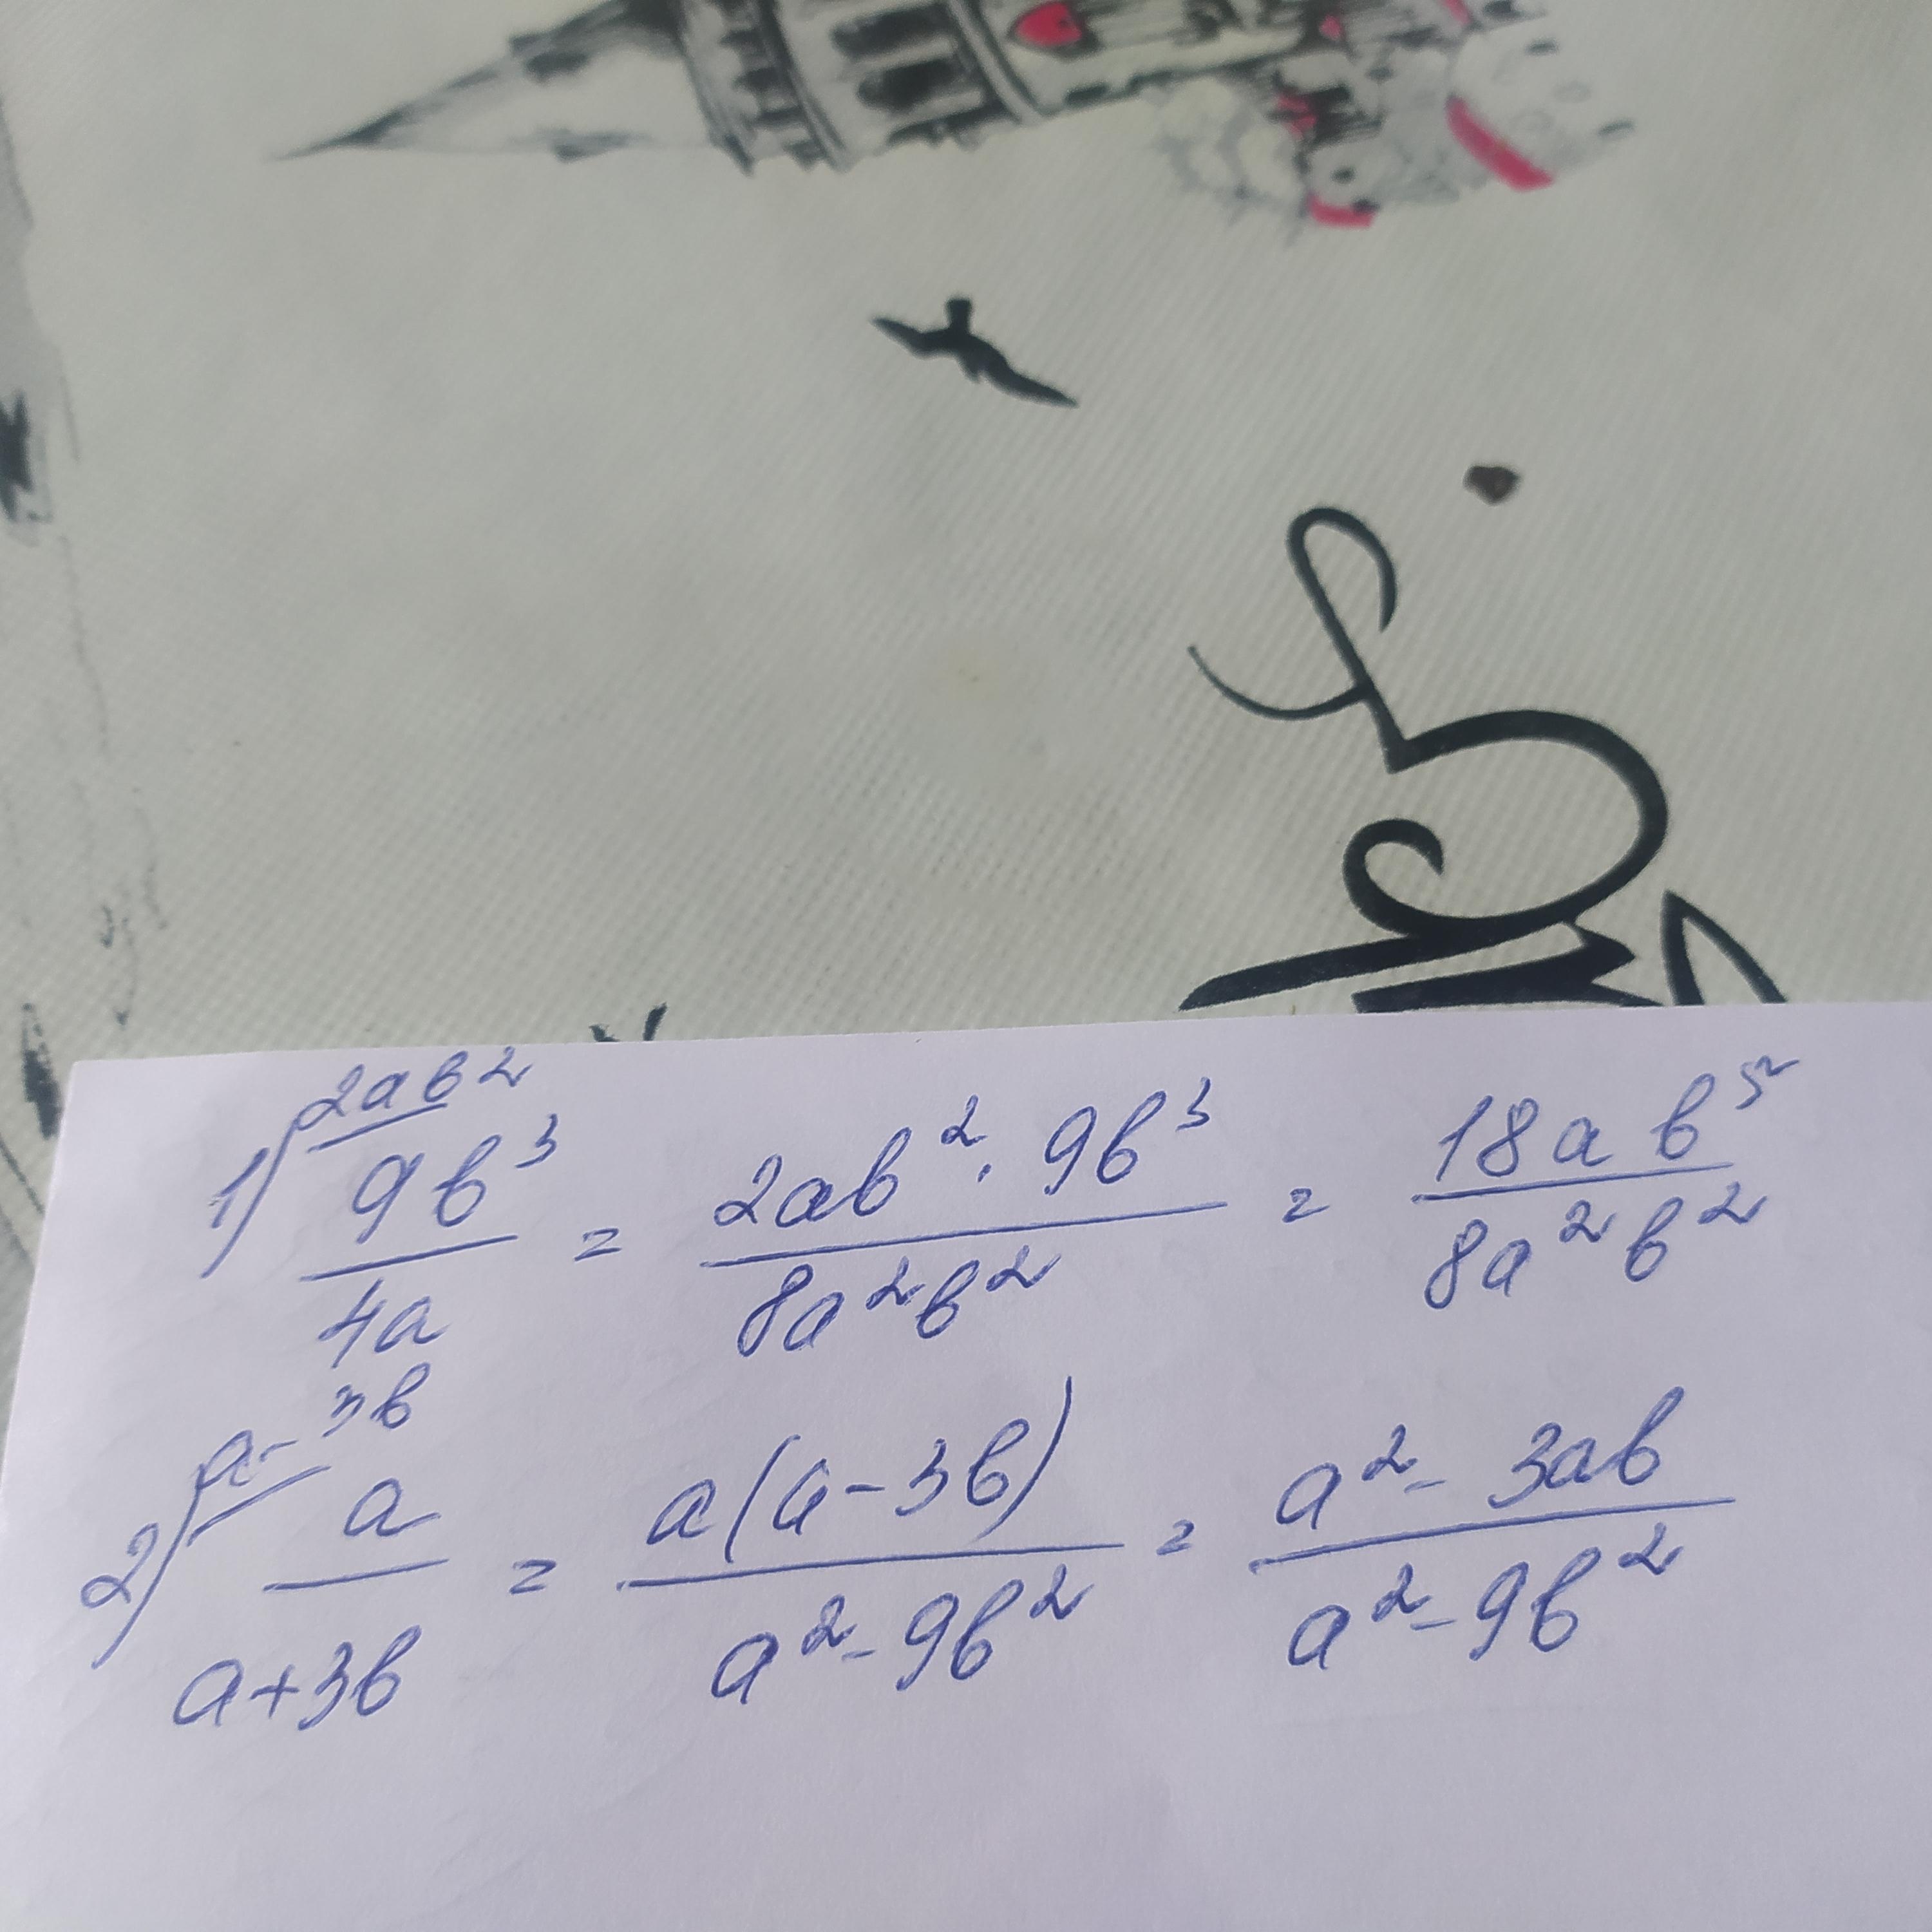 1) 2ab²
9b³/4a = 2ab²·9b³/8a²b² = 18ab⁵/8a²b²
2) a-3b
a/a+3b = a(a-3b)/a²-9b² = a²-3ab/a²-9b²